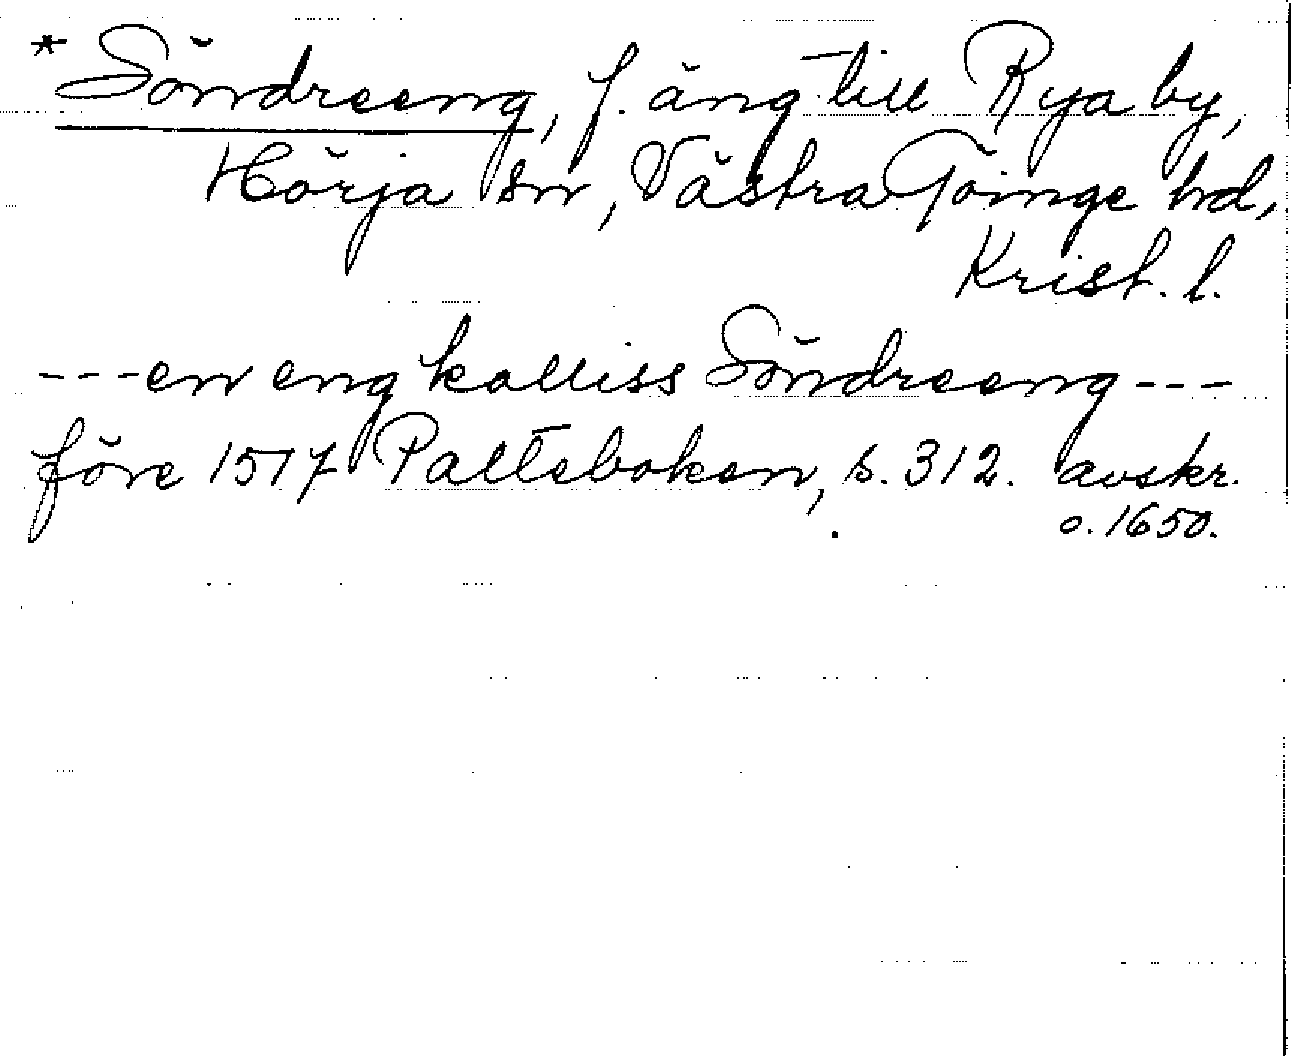 * Söndreeng, f. äng till Rya by,
Hörja sn, Västra Göinge hd,
Krist. l.
---en eng kalliss Söndreeng---
före 1517 Palteboken, s. 312. avskr.
o. 1650.